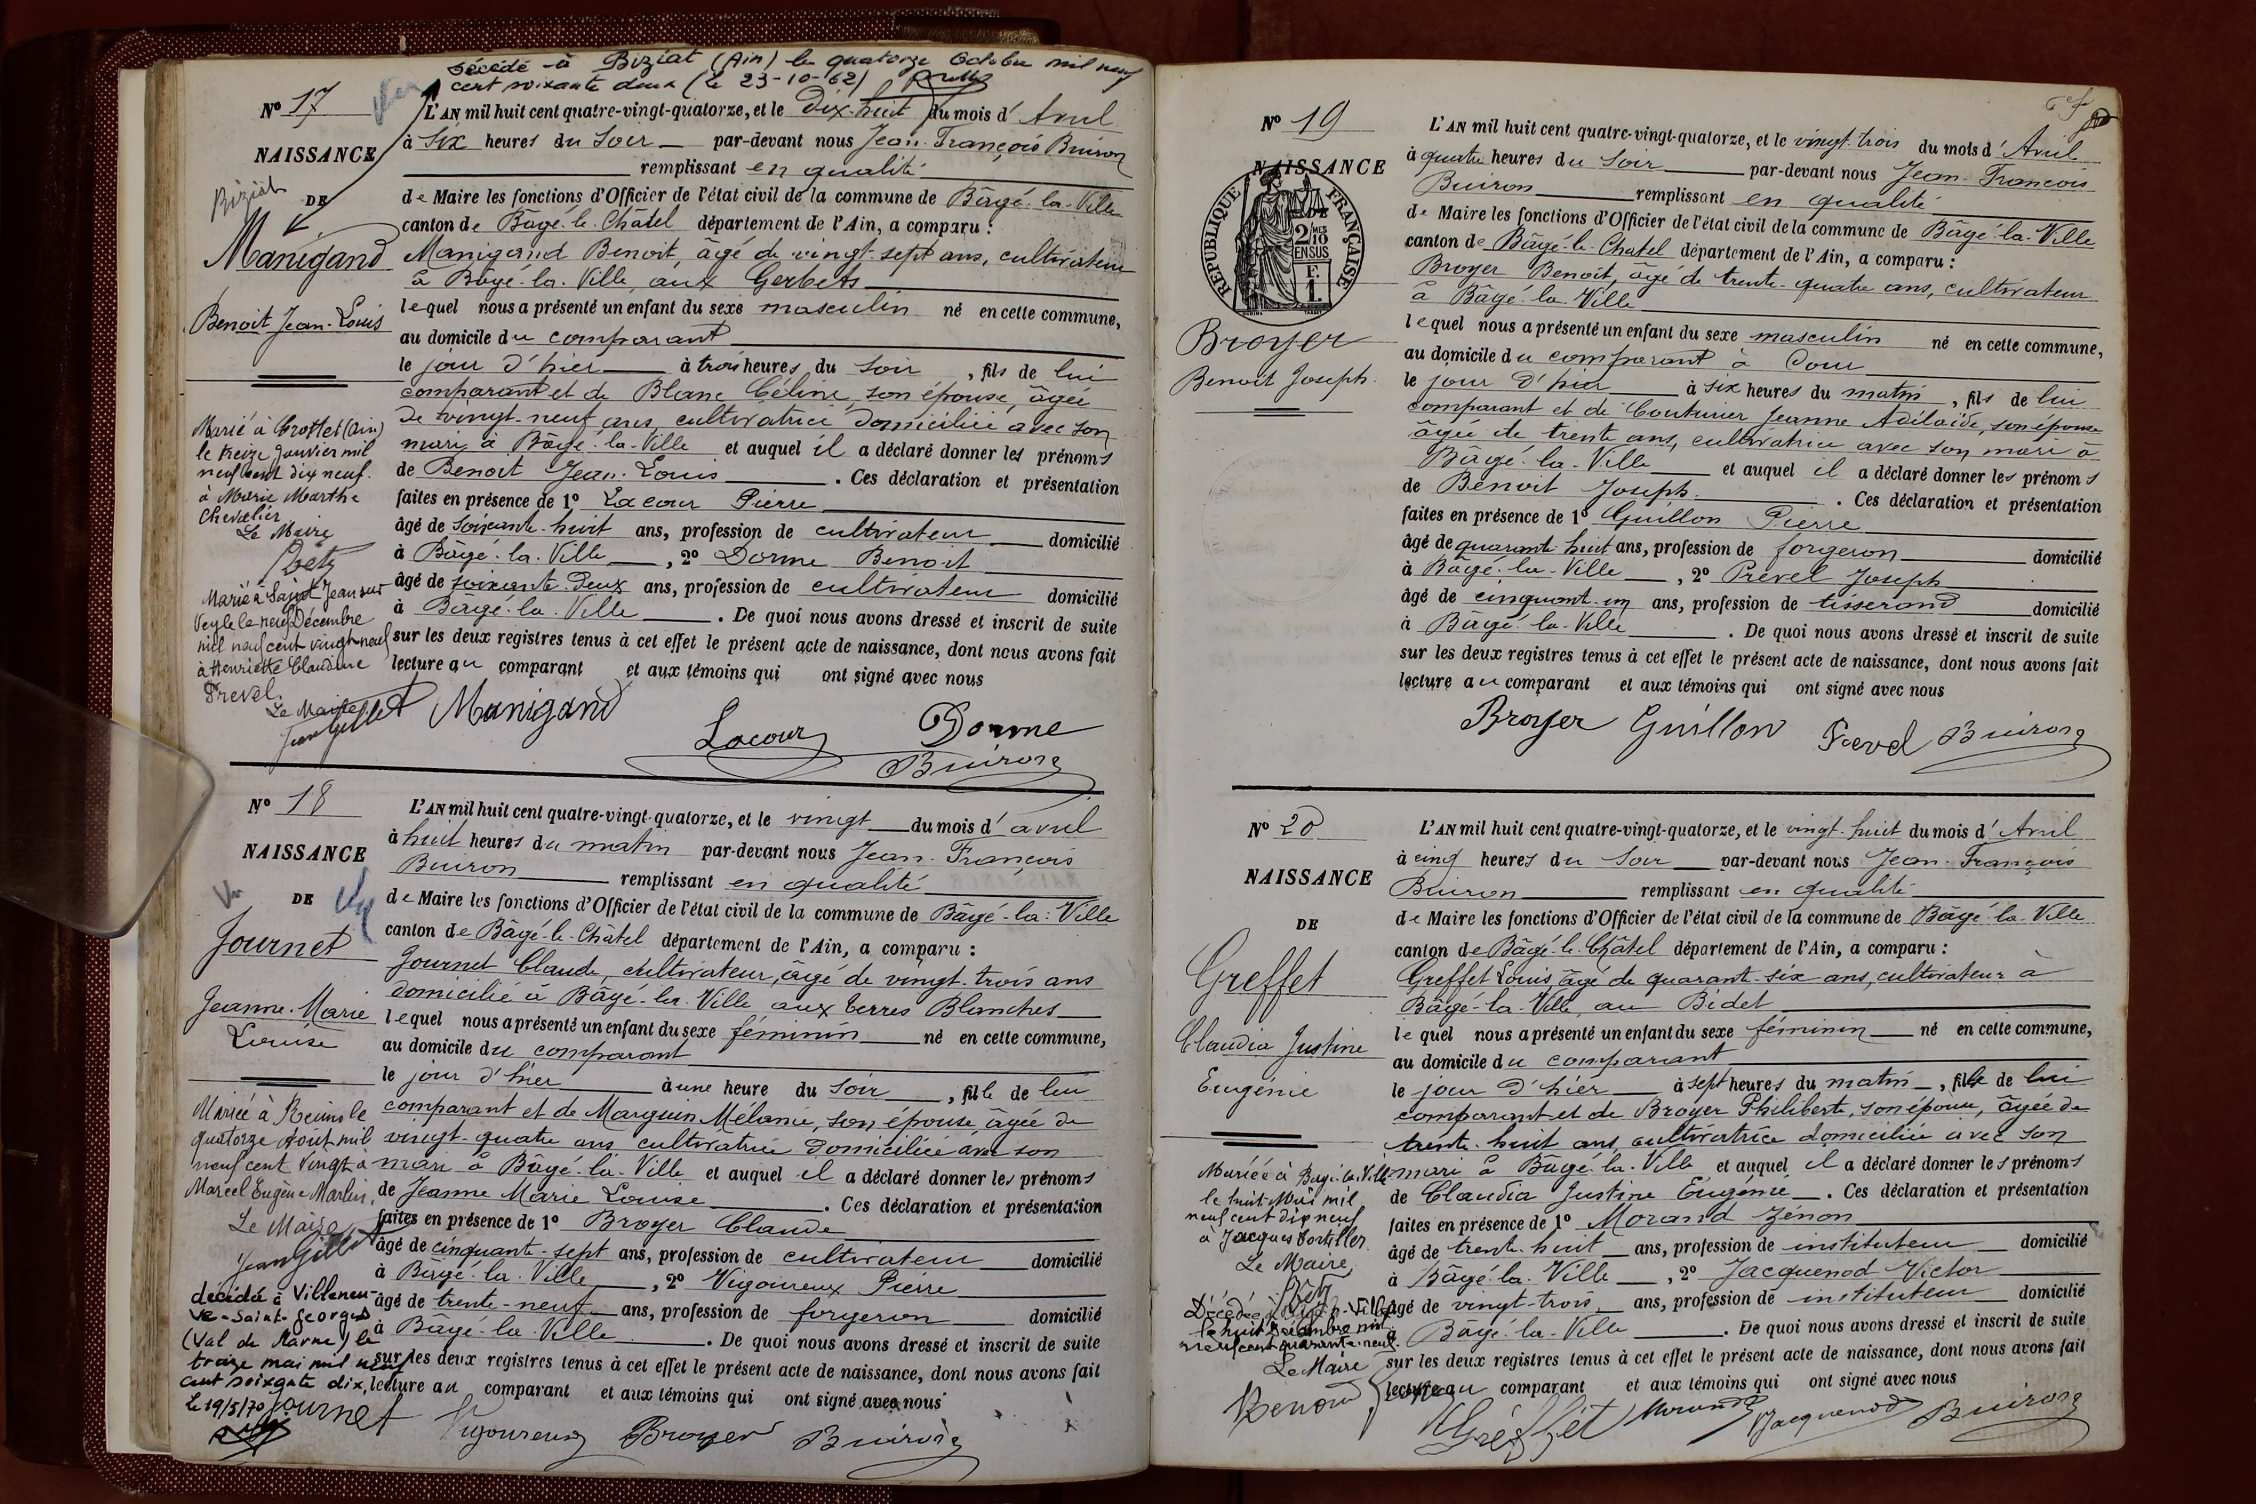 décédé à Biziat (Ain) le quatorze Octobre mil neuf
cent soixante deux (le 23-10-62)
N° 17
NAISSANCE
Biziat
DE
Manigand
Benoit Jean-Louis
L'AN mil huit cent quatre-vingt-quatorze, et le Dix-huit du mois d'Avril
à Six heures du Soir par-devant nous Jean-François Buiron
remplissant en qualité
de Maire les fonctions d'Officier de l'état civil de la commune de Bâgé-la-Ville
canton de Bâgé-le-Châtel département de l'Ain, a comparu :
Manigand Benoit, âgé de vingt-sept ans, cultivateur
à Bâgé-la-Ville, aux Gerbets
lequel nous a présenté un enfant du sexe masculin né en cette commune,
au domicile du comparant
le jour d'hier à trois heures du soir, fils de lui
comparant et de Blanc Céline, son épouse, âgée
de vingt-neuf ans, cultivatrice domiciliée avec son
mari à Bâgé-la-Ville et auquel il a déclaré donner les prénoms
de Benoit Jean-Louis. Ces déclaration et présentation
faites en présence de 1° Lacour Pierre
âgé de soixante-huit ans, profession de cultivateur domicilié
à Bâgé-la-Ville, 2° Dorme Benoit
âgé de soixante-deux ans, profession de cultivateur domicilié
à Bâgé-la-Ville. De quoi nous avons dressé et inscrit de suite
sur les deux registres tenus à cet effet le présent acte de naissance, dont nous avons fait
lecture au comparant et aux témoins qui ont signé avec nous
Manigand
Lacour
Dorme
Buiron
Marié à Crottet (Ain)
le treize Janvier mil
neuf cent dix neuf.
à Marie Marthe
Chevalier
Le Maire
Marié à Saint Jean sur
Veyle le neuf Décembre
mil neuf cent vingt-neuf
à Henriette Claudine
Prevel.
Le Maire
Jean Gillet
N° 18
NAISSANCE
DE
Journet
Jeanne-Marie
Louise
L'AN mil huit cent quatre-vingt-quatorze, et le vingt du mois d'avril
à huit heures du matin par-devant nous Jean-François
Buiron remplissant en qualité
de Maire les fonctions d'Officier de l'état civil de la commune de Bâgé-la-Ville
canton de Bâgé-le-Châtel département de l'Ain, a comparu :
Journet Claude, cultivateur, âgé de vingt-trois ans
domicilié à Bâgé-la-Ville aux terres Blanches
lequel nous a présenté un enfant du sexe féminin né en cette commune,
au domicile du comparant
le jour d'hier à une heure du soir, fille de lui
comparant et de Marguin Mélanie, son épouse âgée de
vingt-quatre ans cultivatrice domiciliée avec son
mari à Bâgé-la-Ville et auquel il a déclaré donner les prénoms
de Jeanne Marie Louise. Ces déclaration et présentation
faites en présence de 1° Broyer Claude
âgé de cinquante-sept ans, profession de cultivateur domicilié
à Bâgé-la-Ville, 2° Vigoureux Pierre
âgé de trente-neuf ans, profession de forgeron domicilié
à Bâgé-la-Ville. De quoi nous avons dressé et inscrit de suite
sur les deux registres tenus à cet effet le présent acte de naissance, dont nous avons fait
lecture au comparant et aux témoins qui ont signé avec nous
Journet Vigoureux Broyer Buiron
Mariée à Reims le
quatorze Août mil
neuf cent vingt à
Marcel Eugène Marlin.
Le Maire
Jean Gillet
décédé à Villeneu-
ve-Saint-Georges
(Val de Marne) le
treize mai mil neuf
cent soixante dix,
Le 19/5/70
N° 19
NAISSANCE
DE
REPUBLIQUE FRANÇAISE
2/10 MES
EN SUS
F.
1.
Broyer
Benoit Joseph.
L'AN mil huit cent quatre-vingt-quatorze, et le vingt-trois du mois d'Avril
à quatre heures du Soir par-devant nous Jean-François
Buiron remplissant en qualité
de Maire les fonctions d'Officier de l'état civil de la commune de Bâgé-la-Ville
canton de Bâgé-le-Chatel département de l'Ain, a comparu :
Broyer Benoit, âgé de trente-quatre ans, cultivateur
à Bâgé-la-Ville
lequel nous a présenté un enfant du sexe masculin né en cette commune,
au domicile du comparant à Cour
le jour d'hier à six heures du matin, fils de lui
comparant et de Couturier Jeanne Adélaïde, son épouse
âgée de trente ans, cultivatrice avec son mari à
Bâgé-la-Ville et auquel il a déclaré donner les prénoms
de Benoit Joseph. Ces déclaration et présentation
faites en présence de 1° Guillon Pierre
âgé de quarante huit ans, profession de forgeron domicilié
à Bâgé-la-Ville, 2° Prevel Joseph
âgé de cinquant-un ans, profession de tisserand domicilié
à Bâgé-la-Ville. De quoi nous avons dressé et inscrit de suite
sur les deux registres tenus à cet effet le présent acte de naissance, dont nous avons fait
lecture au comparant et aux témoins qui ont signé avec nous
Broyer Guillon Prevel Buiron
N° 20
NAISSANCE
DE
Greffet
Claudia Justine
Eugénie
L'AN mil huit cent quatre-vingt-quatorze, et le vingt-huit du mois d'Avril
à cinq heures du Soir par-devant nous Jean-François
Buiron remplissant en qualité
de Maire les fonctions d'Officier de l'état civil de la commune de Bâgé-la-Ville
canton de Bâgé-le-Châtel département de l'Ain, a comparu :
Greffet Louis, âgé de quarante-six ans, cultivateur à
Bâgé-la-Ville, au Bidet
lequel nous a présenté un enfant du sexe féminin né en cette commune,
au domicile du comparant
le jour d'hier à sept heures du matin, fille de lui
comparant et de Broyer Philiberte, son épouse, âgée de
trente-huit ans, cultivatrice domiciliée avec son
mari à Bâgé-la-Ville et auquel il a déclaré donner les prénoms
de Claudia Justine Eugénie. Ces déclaration et présentation
faites en présence de 1° Morand Zénon
âgé de trente-huit ans, profession de instituteur domicilié
à Bâgé-la-Ville, 2° Jacquenod Victor
âgé de vingt-trois ans, profession de instituteur domicilié
à Bâgé-la-Ville. De quoi nous avons dressé et inscrit de suite
sur les deux registres tenus à cet effet le présent acte de naissance, dont nous avons fait
lecture au comparant et aux témoins qui ont signé avec nous
Greffet Morand Jacquenod Buiron
Mariée à Bâgé-la-Ville
le huit Mai mil
neuf cent dix neuf
à Jacques Portiller.
Le Maire,
Décédée à Bâgé-la-Ville
le huit Décembre mil
neuf cent quarante-neuf.
Le Maire